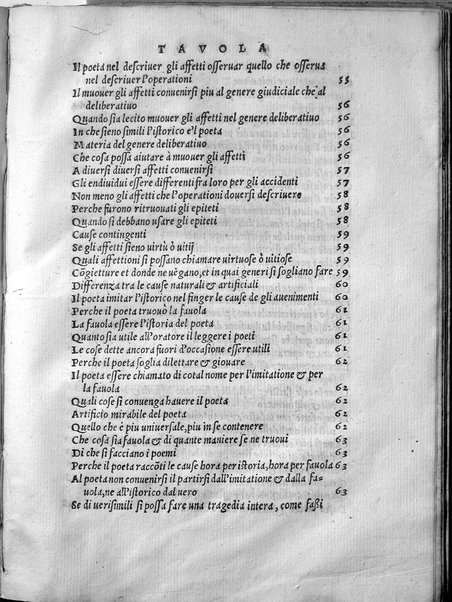 TAVOLA
Il poeta nel descriuer gli affetti osseruar quello che osserua
nel descriuer l'operationi 55
Il muouer gli affetti conuenirsi piu al genere giudiciale che al
deliberatiuo 56
Quando sia lecito muouer gli affetti nel genere deliberatiuo 56
In che sieno simili l'istorico e'l poeta 56
Materia del genere deliberatiuo 56
Che cosa possa aiutare à muouer gli affetti 56
A diuersi diuersi affetti conuenirsi 57
Gli endiuidui essere differenti fra loro per gli accidenti 57
Non meno gli affetti che l'operationi douersi descriuere 58
Perche furono ritruouati gli epiteti 58
Quando si debbano usare gli epiteti 58
Cause contingenti 59
Se gli affetti sieno uirtù ò uitij 59
Quali affettioni si possano chiamare uirtuose ò uitiose 59
Cōgietture et donde ne uēgano, et in quai generi si sogliano fare 59
Differenza tra le cause naturali & artificiali 60
Il poeta imitar l'istorico nel finger le cause de gli auenimenti 60
Perche il poeta truouò la fauola 61
La fauola essere l'istoria del poeta 61
Quanto sia utile all'oratore il leggere i poeti 61
Le cose dette ancora fuori d'occasione essere utili 61
Perche il poeta soglia dilettare & giouare 62
Il poeta essere chiamato di cotal nome per l'imitatione & per
la fauola 62
Quali cose si conuenga hauere il poeta 62
Artificio mirabile del poeta 62
Quello che è piu uniuersale, piu in se contenere 62
Che cosa sia fauola & di quante maniere se ne truoui 63
Di che si facciano i poemi 63
Perche il poeta raccōti le cause hora per istoria, hora per fauola 63
Al poeta non conuenirsi il partirsi dall'imitatione & dalla fa-
uola, ne all'istorico dal uero 63
Se di uerisimili si possa fare una tragedia intera, come fassi